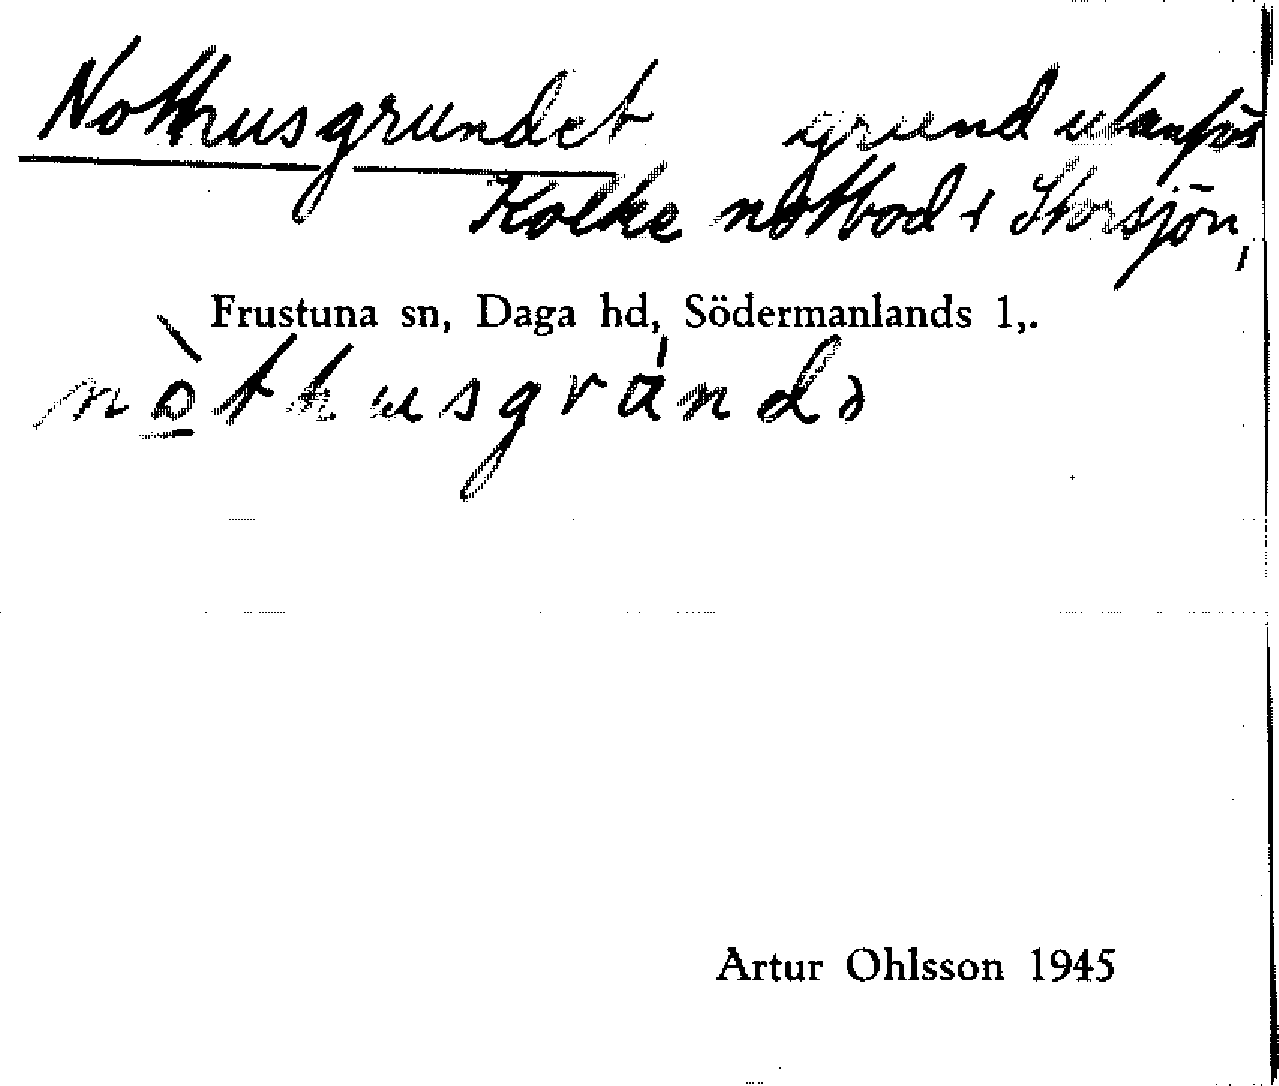 Nothusgrundet grund utanför
Kolke notbod i Storsjön,
Frustuna sn, Daga hd, Södermanlands l,.
nòthusgrándə
Artur Ohlsson 1945